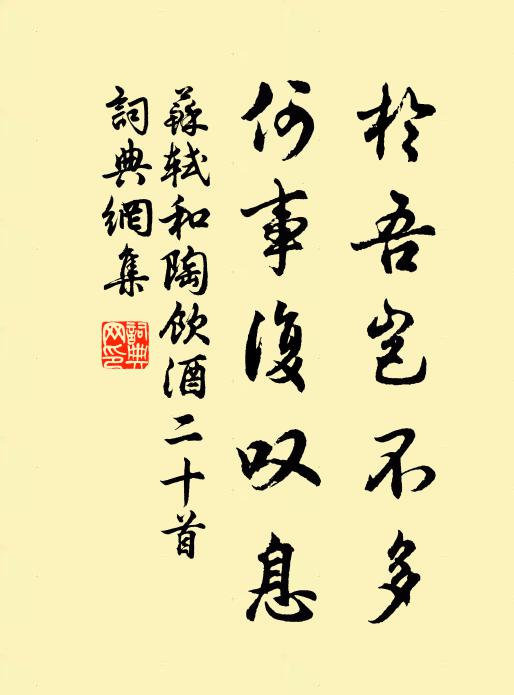 於吾岂不多
何事復叹息
蘇軾和陶飲酒二十首
詞典網集
詞典網印